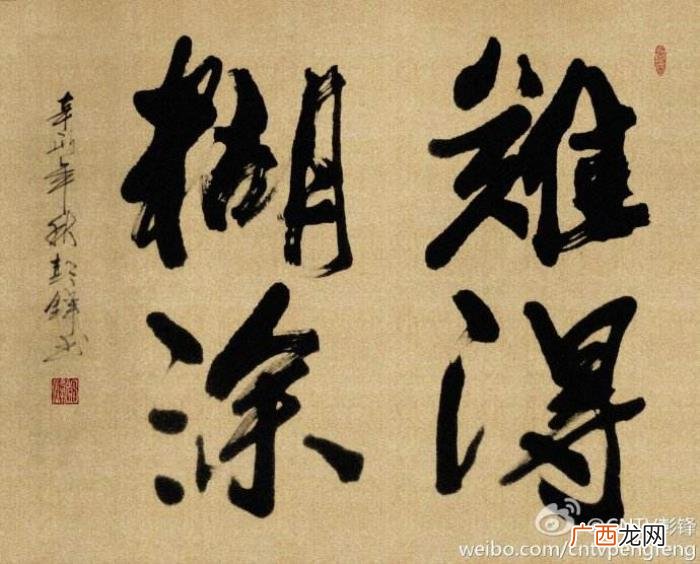 難得
糊涂
辛卯年秋彭鋒书
@CNTV彭锋
广西龙网
weibo.com/cntvpengfeng